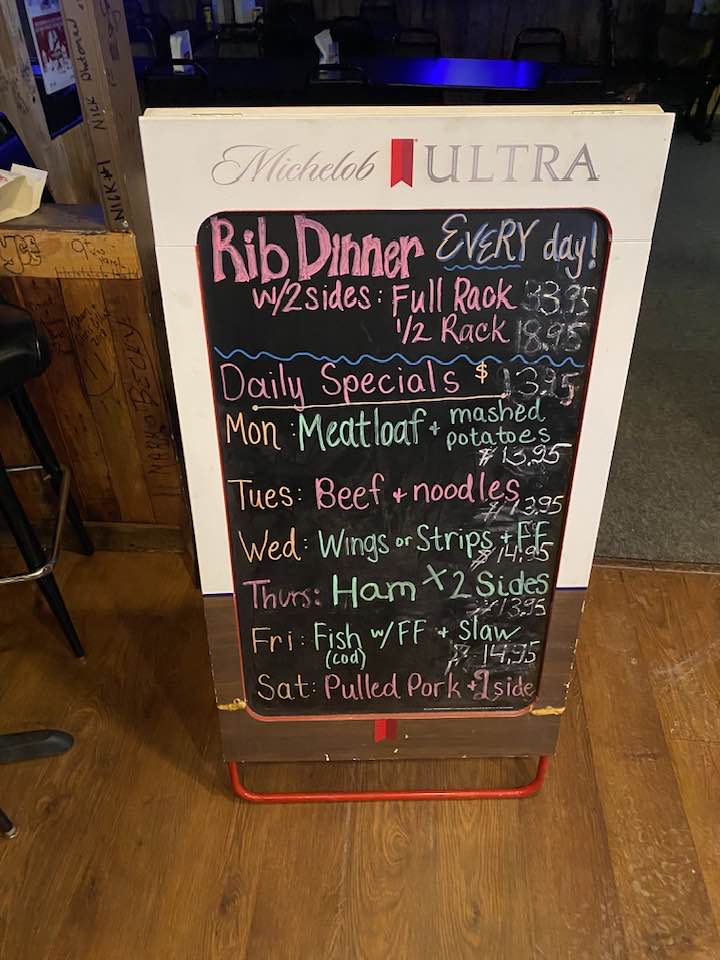 Michelob ULTRA
Rib Dinner EVERY day!
w/2 sides: Full Rack 33.95
1/2 Rack 18.95
Daily Specials $ 13.95
Mon: Meatloaf + mashed
potatoes
$13.95
Tues: Beef + noodles
$13.95
Wed: Wings or Strips + FF
$14.95
Thurs: Ham x 2 Sides
$13.95
Fri: Fish w/FF + slaw
(cod)
$14.95
Sat: Pulled Pork + 1 side
NICK #1
NICK
BECKY